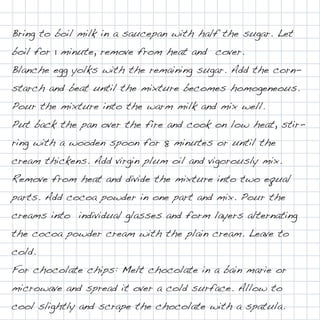 Bring to boil milk in a saucepan with half the sugar. Let
boil for 1 minute, remove from heat and cover.
Blanche egg yolks with the remaining sugar. Add the corn-
starch and beat until the mixture becomes homogeneous.
Pour the mixture into the warm milk and mix well.
Put back the pan over the fire and cook on low heat, stir-
ring with a wooden spoon for 8 minutes or until the
cream thickens. Add virgin plum oil and vigorously mix.
Remove from heat and divide the mixture into two equal
parts. Add cocoa powder in one part and mix. Pour the
creams into individual glasses and form layers alternating
the cocoa powder cream with the plain cream. Leave to
cold.
For chocolate chips: Melt chocolate in a bain marie or
microwave and spread it over a cold surface. Allow to
cool slightly and scrape the chocolate with a spatula.